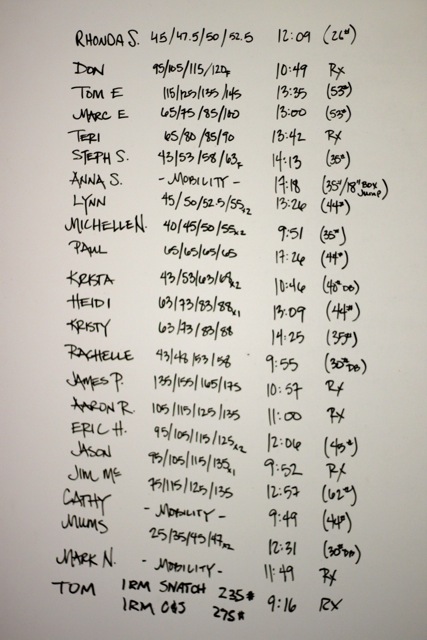 RHONDA S. 45/47.5/50/52.5 12:09 (26#)
DON 95/105/115/120F 10:49 Rx
TOM E 115/125/135/145 13:35 (53#)
MARC E 65/75/85/100 13:00 (53#)
TERI 65/80/85/90 13:42 Rx
STEPH S. 43/53/58/63F 14:13 (35#)
ANNA S. - MOBILITY - 17:18 (35#/18" BOX JUMP)
LYNN 45/50/52.5/55x2 13:26 (44#)
MICHELLE N. 40/45/50/55x2 9:51 (35#)
PAUL 65/65/65/65 17:26 (44#)
KRISTA 43/53/63/68x2 10:46 (40# DB)
HEIDI 63/73/83/88x1 13:09 (44#)
KRISTY 63/73/83/88 14:25 (35#)
RACHELLE 43/48/53/58 9:55 (30# DB)
JAMES P. 135/155/165/175 10:57 Rx
AARON R. 105/115/125/135 11:00 Rx
ERIC H. 95/105/115/125x2 12:06 (45#)
JASON 95/105/115/135x1 9:52 Rx
JIM Mc 75/115/125/135 12:57 (62#)
CATHY - MOBILITY - 9:49 (44#)
MUMS 25/35/45/47x2 12:31 (30# DB)
MARK N. - MOBILITY - 11:49 Rx
TOM 1RM SNATCH 235#
1RM C&J 275# 9:16 RX